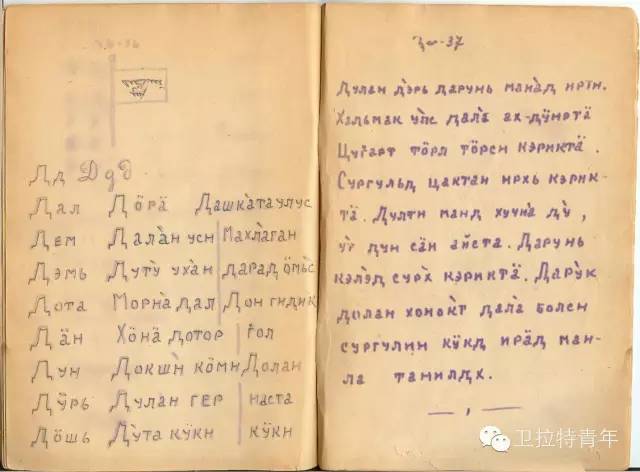 Дд Ддд
Дал Дӧрӓ Дашкатаулус
Дем Далан усн Махлаган
Дэмь Дуту ухан дарад ӧмьс
Дота Морна дал Дон гидик
Дӓн Хӧнӓ дотор гол
Дун Докшн кӧмн Долан
Дӱрь Дулан гер наста
Дӧшь Дута кӱкн кӱкн
37
Дулан дэрь дарунь манад ирти.
Хальмак улс дала ах-дӱнртӓ
Цугарт тӧрл тӧрсн кэриктӓ.
Сургульд цактан ирхь кэрик-
тӓ. Дулти манд хучна ду,
уг дун сӓн айста. Дарунь
кэлэд сурх кэриктӓ. Дарук
долан хонокт дала болсн
сургулин кӱкд ирӓд ман-
ла танилдх.
卫拉特青年